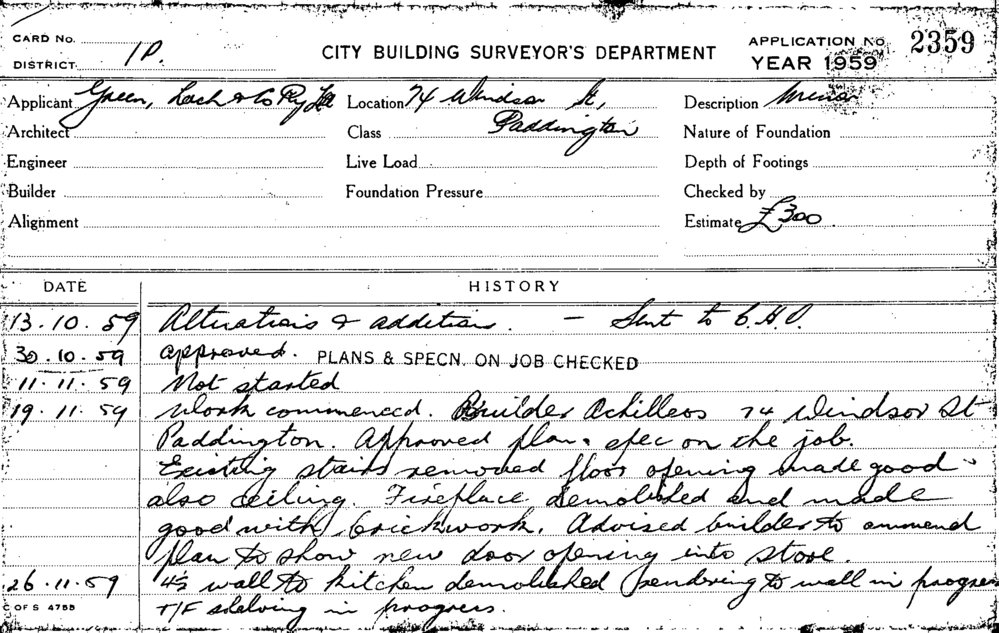 CARD No.
DISTRICT 1D.
CITY BUILDING SURVEYOR'S DEPARTMENT
APPLICATION No 2359
YEAR 1959
Applicant Green, Lach & Co Pty Ltd Location 74 Windsor St, Description Minor
Architect Class Paddington Nature of Foundation
Engineer Live Load Depth of Footings
Builder Foundation Pressure Checked by
Alignment Estimate £300
DATE HISTORY
13.10.59 Alterations & additions. - Sent to C.H.O.
30.10.59 approved. PLANS & SPECN. ON JOB CHECKED
11.11.59 Not started
19.11.59 Work commenced. Builder Achilleos 74 Windsor St
Paddington. Approved plan & spec on the job.
Existing stairs removed floor opening made good
also ceiling. Fireplace demolished and made
good with brickwork. Advised builder to ammend
plan to show new door opening into store.
26.11.59 4½ wall to kitchen demolished rendering to wall in progress
T/F shelving in progress.
C OF S 4755